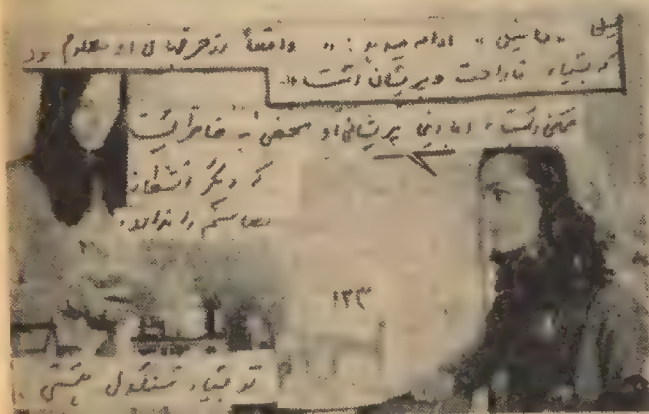 « ادامه میدهد: » واقعاً از حرفهای او معلوم بود
که بسیار ناراحت و پریشان است»
ممکن است، اما این پریشانی او محض به خاطر اینست
که دیگر انتظار
را ندارد.
۱۳۳
تو بسیار سنگدل هستی.